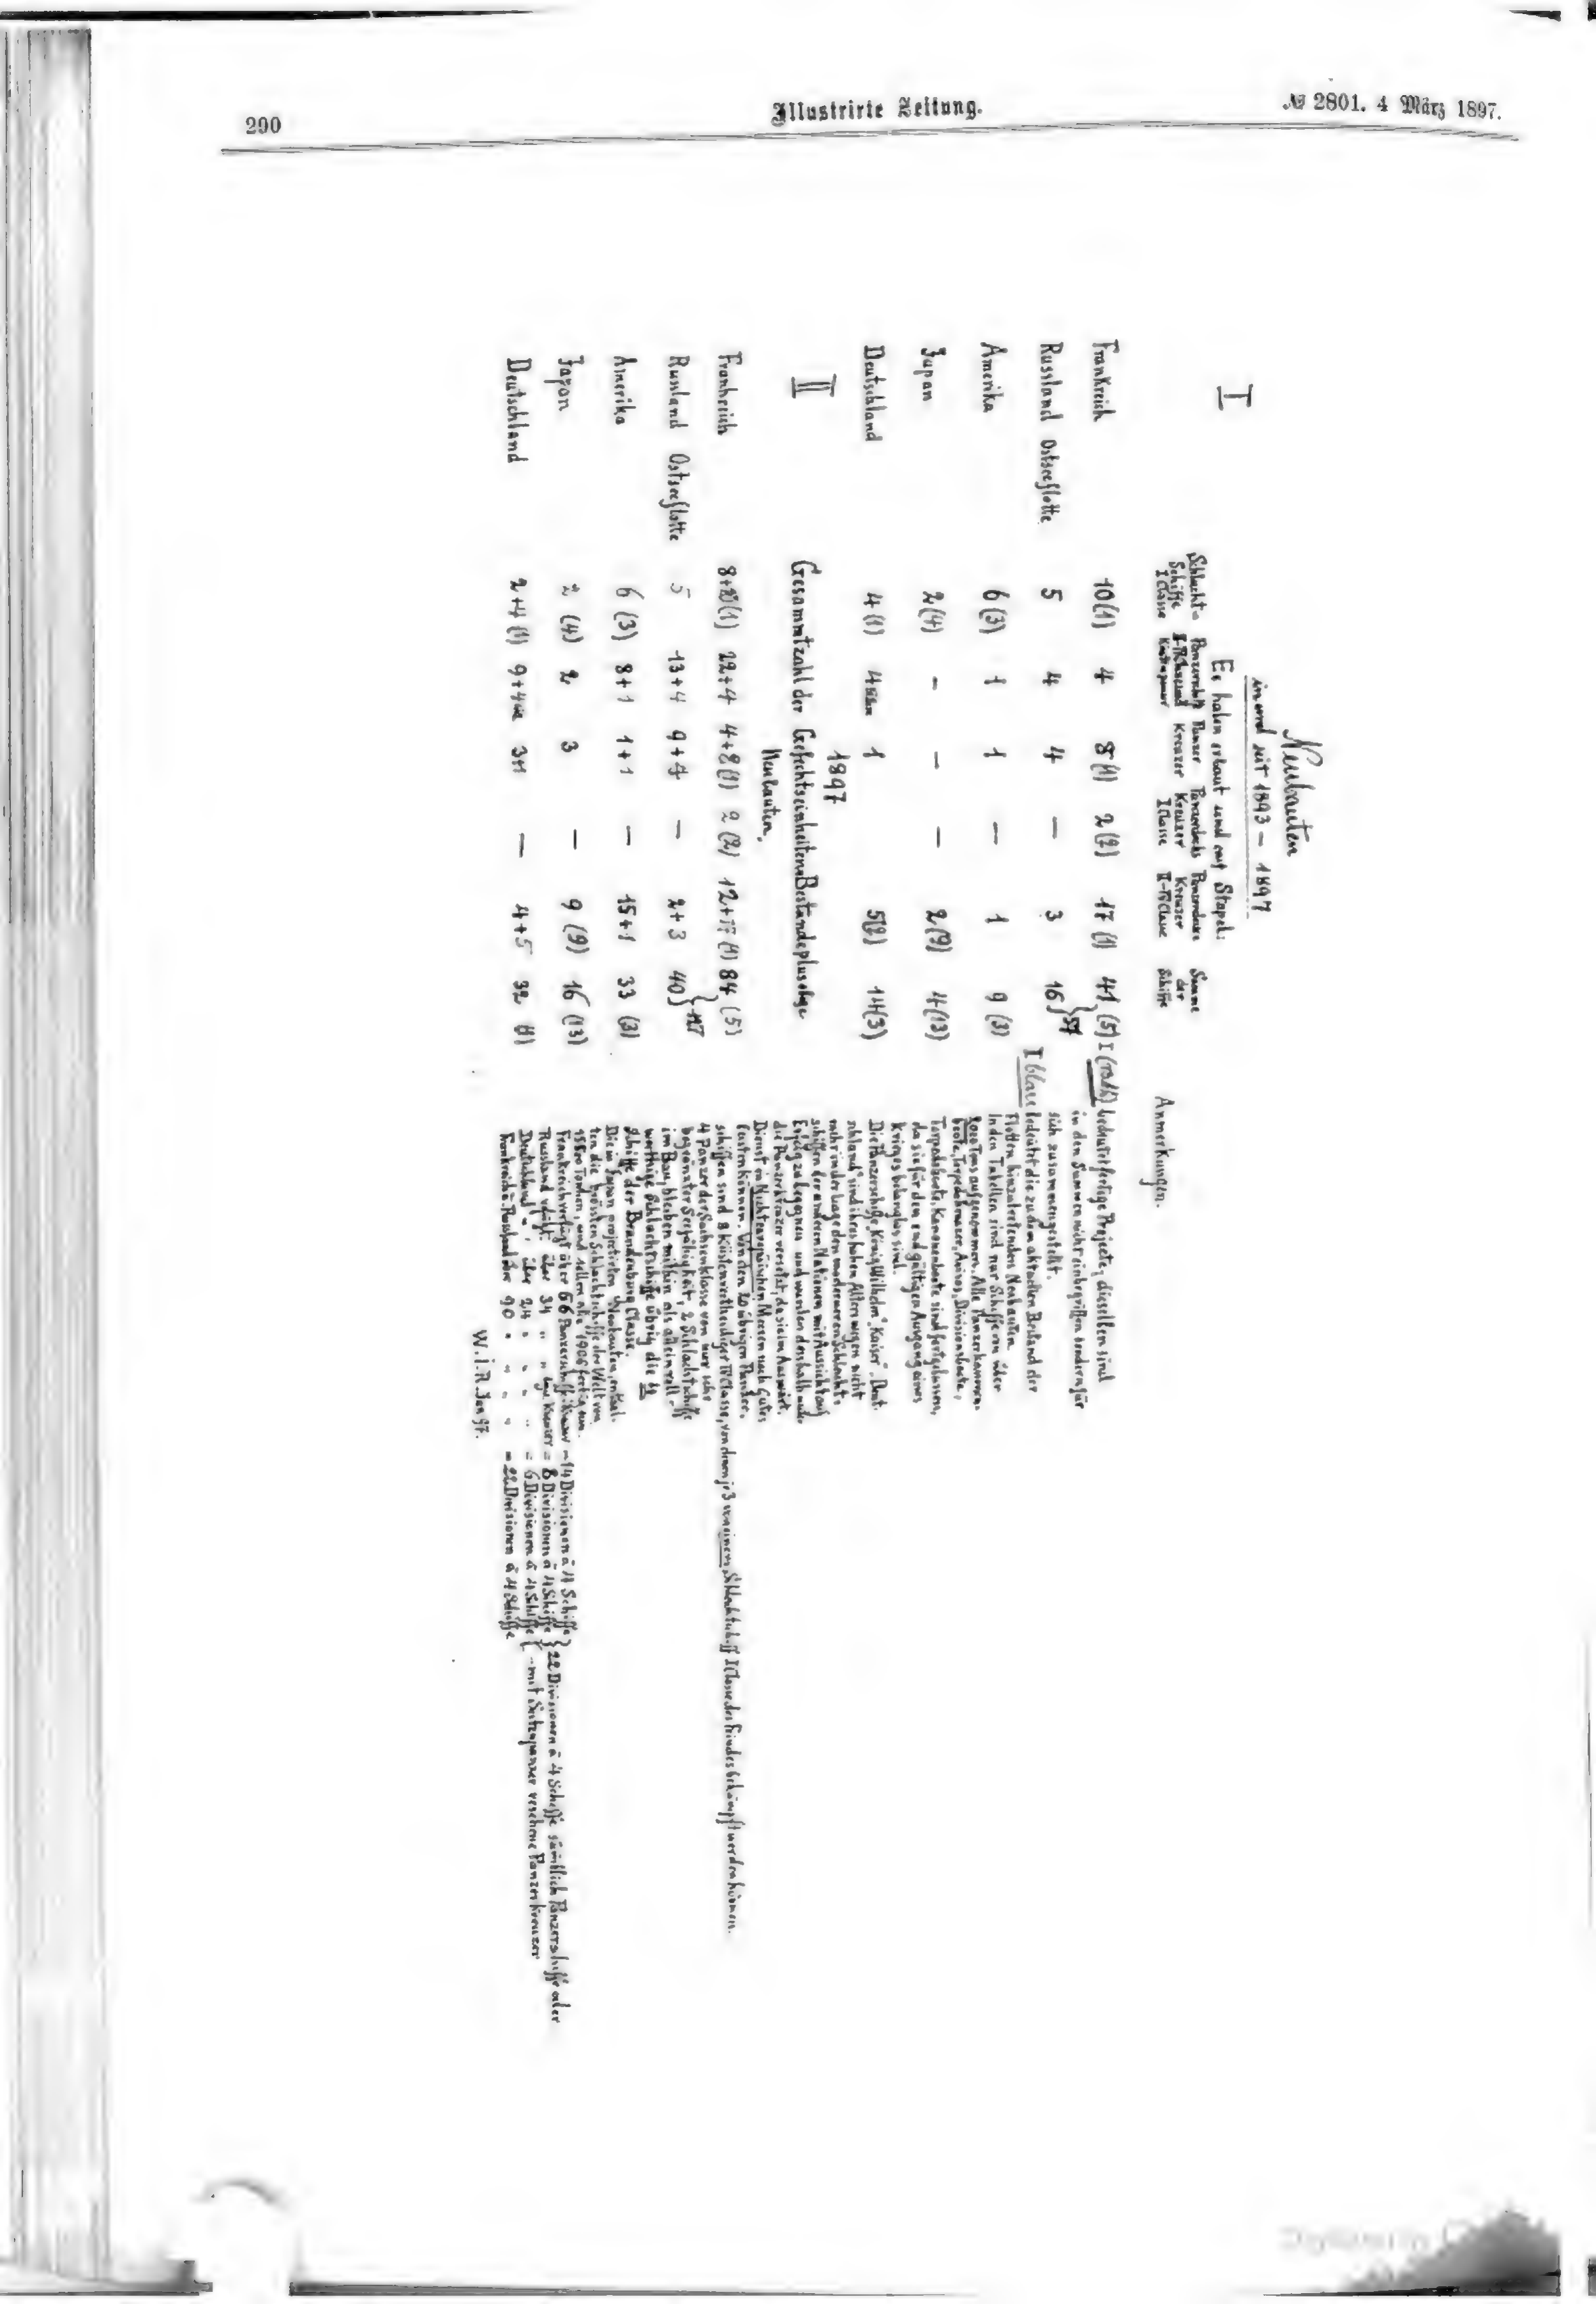 290
Illustrirte Zeitung.
№ 2801. 4 März 1897.
Neubauten
in und seit 1893 – 1897
I
Es haben erbaut und auf Stapel:
Schlacht- Panzerschiffe Panzer Panzerdecks Panzerdecks Summe
Schiffe Kreuzer Kreuzer Kreuzer der
I Classe Küstenpanzer I Classe II–IV Classe Schiffe
Anmerkungen.
Frankreich 10(1) 4 8(1) 2(2) 17(1) 41 (5)
Russland Ostseeflotte 5 4 4 — 3 16 } 57
Amerika 6(3) 1 1 — 1 9 (3)
Japan 2(4) – – – 2(9) 4(13)
Deutschland 4(1) 4 1 5(2) 14(3)
II
1897
Gesammtzahl der Gefechtseinheiten Bestände plus obige
Neubauten.
Frankreich 22+4 4+8(1) 2(2) 12+17(1) 84 (5)
Russland Ostseeflotte 5 13+4 9+4 — 2+3 40 } 127
Amerika 6(3) 8+1 1+1 — 15+1 33 (3)
Japan 2(4) 2 3 — 9(9) 16 (13)
Deutschland 2+4(1) 9+4 3+1 — 4+5 32 (1)
I (roth) bedeutet fertige Projecte, dieselben sind
in den Summen nicht einbegriffen sondern für
sich zusammengestellt.
I blau bedeutet die zu dem aktuellen Bestand der
Flotten hinzutretenden Neubauten.
In den Tabellen sind nur Schiffe von über
Tons aufgenommen. Alle Panzerkanonen-
boote, Torpedokreuzer, Avisos, Divisionsboote,
Torpedoboote, Kanonenboote sind fortgelassen,
da sie für den endgültigen Ausgang eines
Krieges belanglos sind.
Die Panzerschiffe „König Wilhelm“ „Kaiser“ „Deut-
schland“ sind ihres hohen Alters wegen nicht
mehr in der Lage den moderneren Schlacht-
schiffen der anderen Nationen mit Aussicht auf
Erfolg zu begegnen und wurden desshalb unter
die Panzerkreuzer versetzt, da sie im Auswärt.
Dienst in Nichteuropäischen Meeren noch Gutes
leisten können. Von den übrigen Panzer-
schiffen sind 8 Küstenvertheidiger IV Classe, von denen je 3 von einem Schlachtschiff I Classe des Feindes bekämpft werden können.
4 Panzer der Sachsenklasse von nur sehr
begrenzter Seefähigkeit, 2 Schlachtschiffe
im Bau, bleiben mithin als allein voll-
werthige Schlachtschiffe übrig die 4
Schiffe der Brandenburg Classe.
Die in Japan projectirten Neubauten, enthal-
ten die grössten Schlachtschiffe der Welt von
Tonnen, und sollen alle 1906 fertig sein.
Frankreich verfügt über 56 Panzerschiffe = 14 Divisionen à 4 Schiffe
Russland verfügt über 34 " " = 8 Divisionen à 4 Schiffe } 22 Divisionen à 4 Schiffe sämtlich Panzerschiffe oder
Deutschland " über 24 " " " = 6 Divisionen à 4 Schiffe { mit Seitenpanzer versehene Panzerkreuzer
Frankreich u. Russland über 90 " " " = 22 Divisionen à 4 Schiffe
W. I. R. Jan 97.